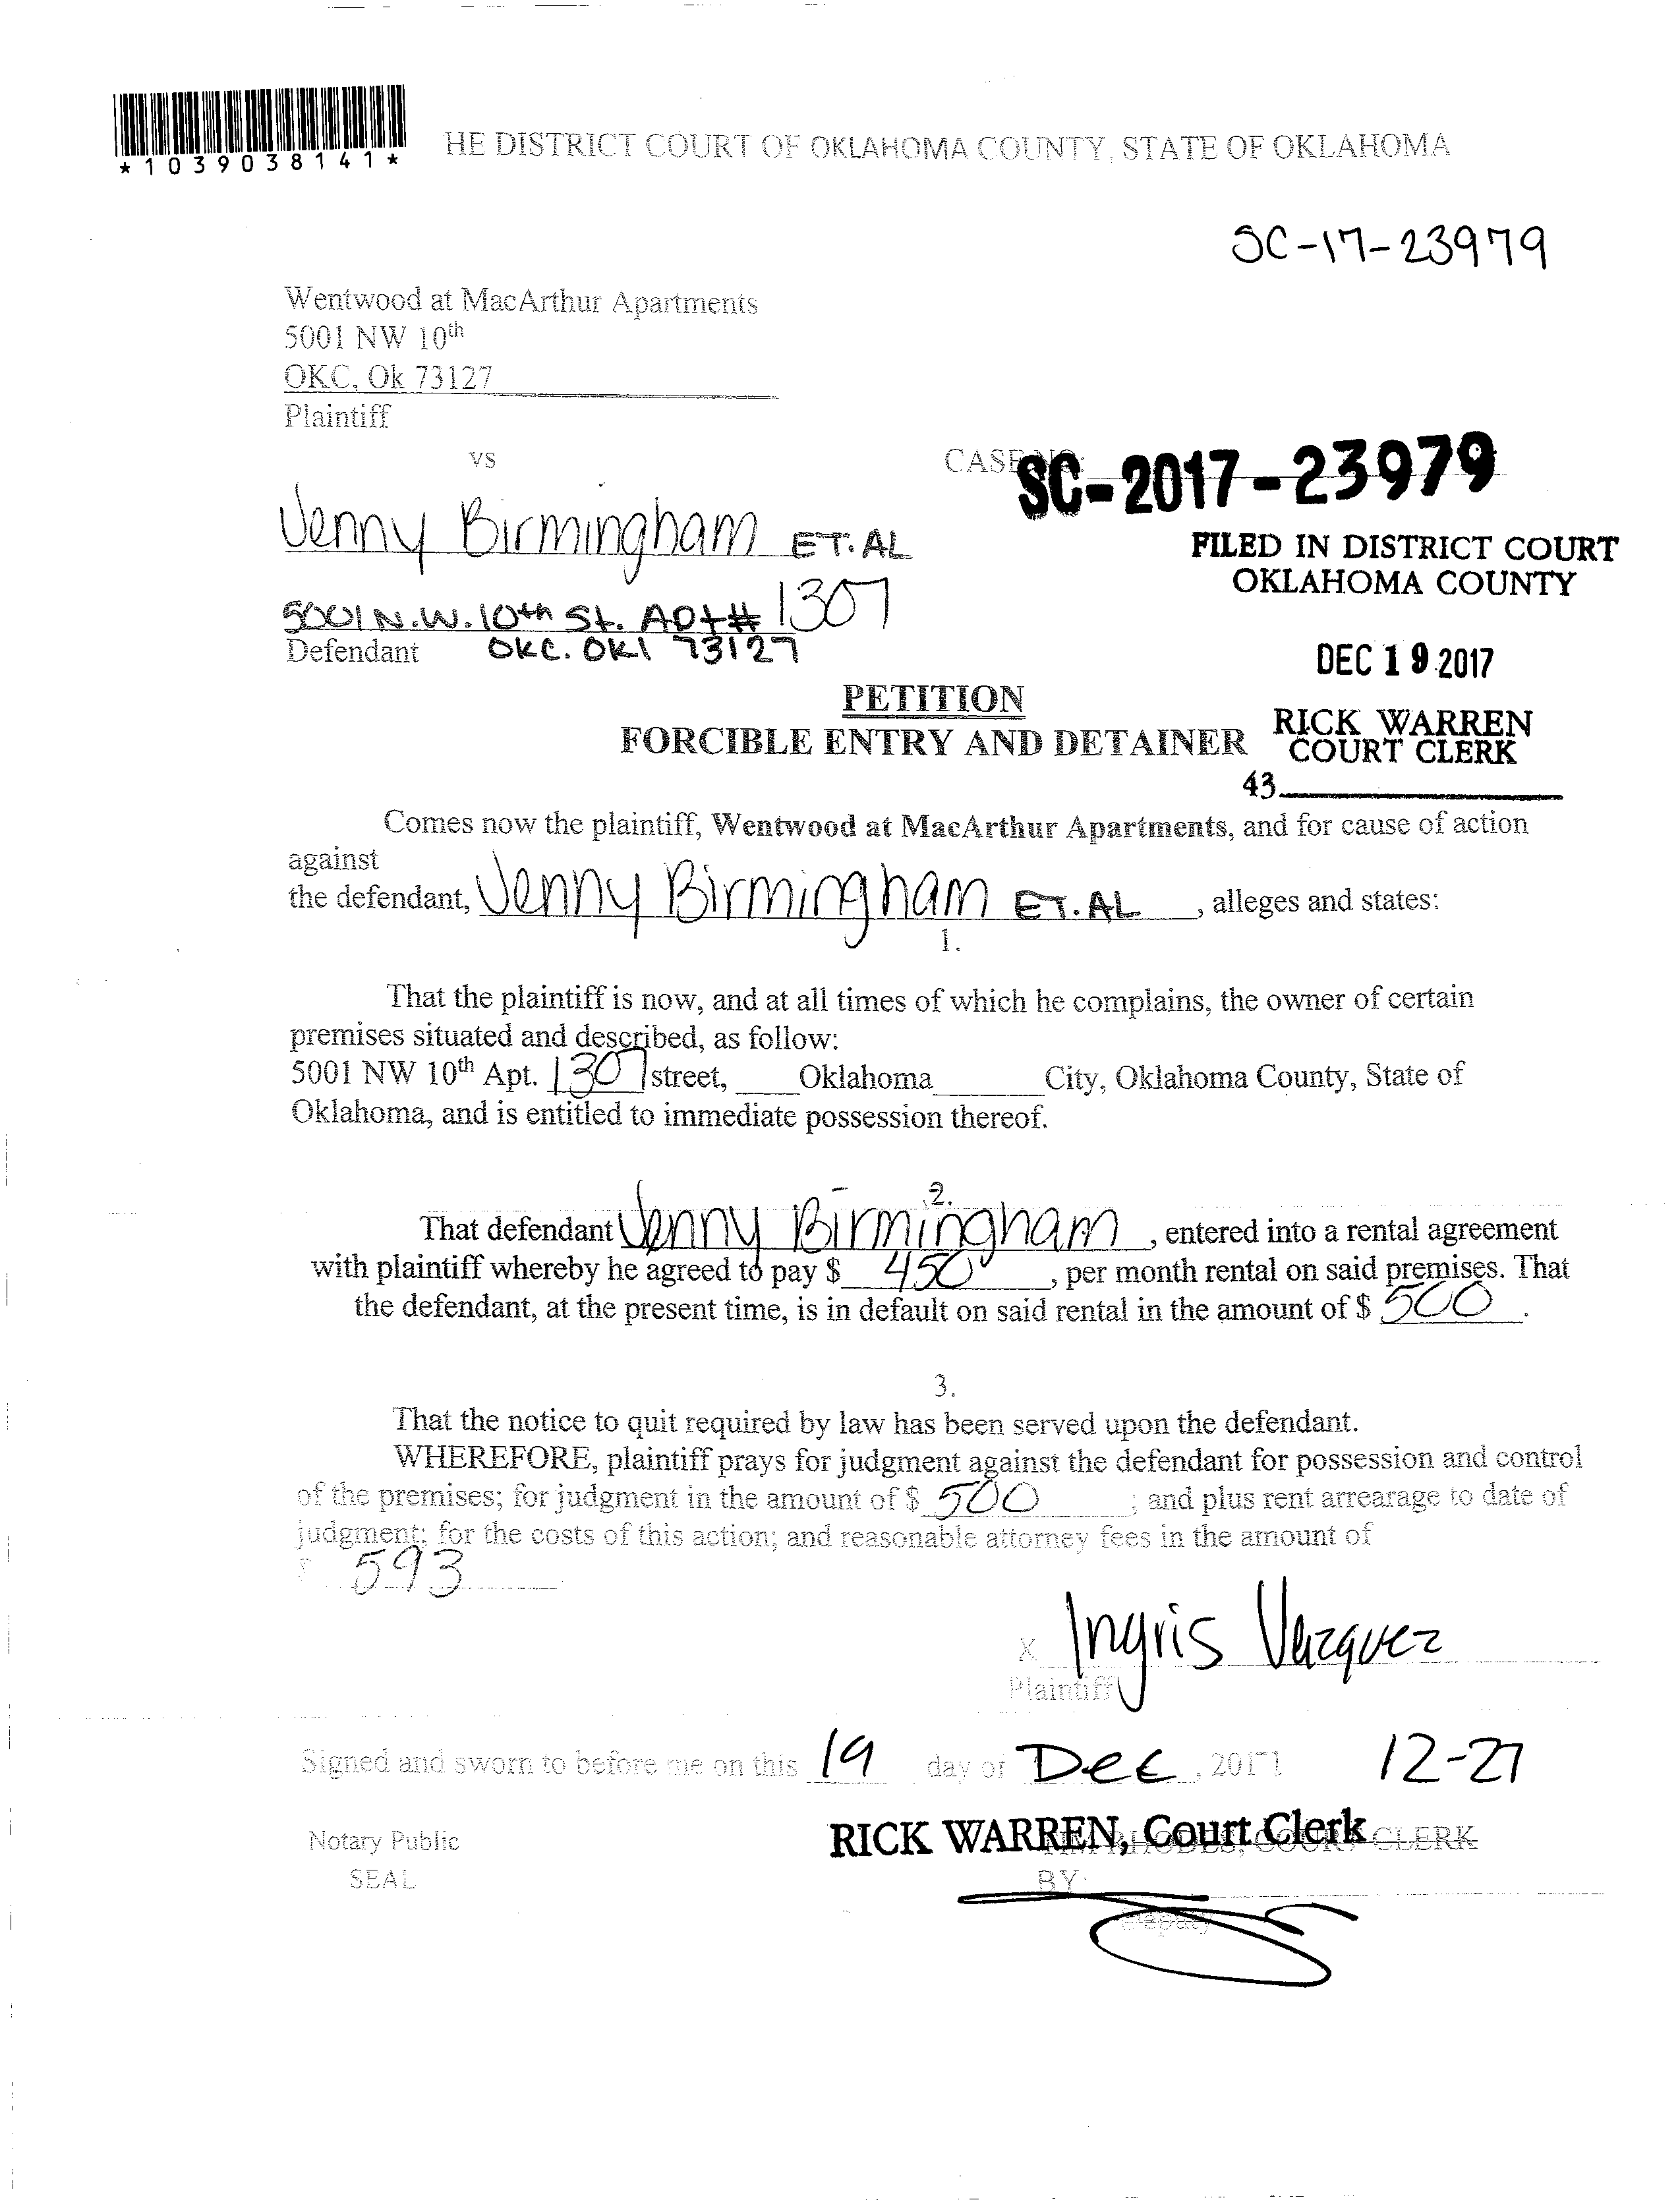 *1039038141*
HE DISTRICT COURT OF OKLAHOMA COUNTY, STATE OF OKLAHOMA
SC-17-23979
Wentwood at MacArthur Apartments
5001 NW 10th
OKC, Ok 73127
Plaintiff
vs
CASE NO:
SC-2017-23979
Jenny Birmingham ET.AL
FILED IN DISTRICT COURT
OKLAHOMA COUNTY
5001 N.W. 10th St. Apt# 1307
Defendant OKC. OKl 73127
DEC 19 2017
PETITION
FORCIBLE ENTRY AND DETAINER
RICK WARREN
COURT CLERK
43
Comes now the plaintiff, Wentwood at MacArthur Apartments, and for cause of action
against
the defendant, Jenny Birmingham ET.AL, alleges and states:
1.
That the plaintiff is now, and at all times of which he complains, the owner of certain
premises situated and described, as follow:
5001 NW 10th Apt. 1307 street, Oklahoma City, Oklahoma County, State of
Oklahoma, and is entitled to immediate possession thereof.
2.
That defendant Jenny Birmingham, entered into a rental agreement
with plaintiff whereby he agreed to pay $ 450, per month rental on said premises. That
the defendant, at the present time, is in default on said rental in the amount of $ 500.
3.
That the notice to quit required by law has been served upon the defendant.
WHEREFORE, plaintiff prays for judgment against the defendant for possession and control
of the premises; for judgment in the amount of $ 500; and plus rent arrearage to date of
judgment; for the costs of this action; and reasonable attorney fees in the amount of
$ 593
x Ingris Vazquez
Plaintiff
Signed and sworn to before me on this 19 day of Dec, 2017 12-27
Notary Public
RICK WARREN, Court Clerk CLERK
SEAL
BY:
Deputy